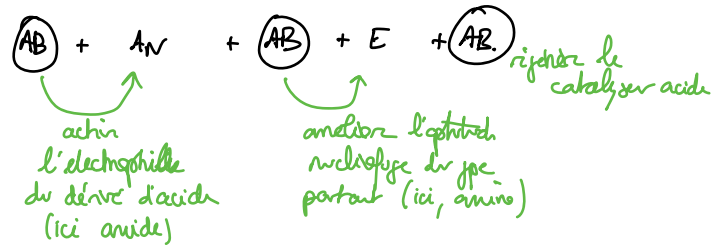 AB + AN + AB + E + AB.
régénérer le
catalyseur acide
activer
l'électrophilie
du dérivé d'acide
(ici amide)
améliorer l'aptitude
nucléofuge du gpe
partant (ici, amine)